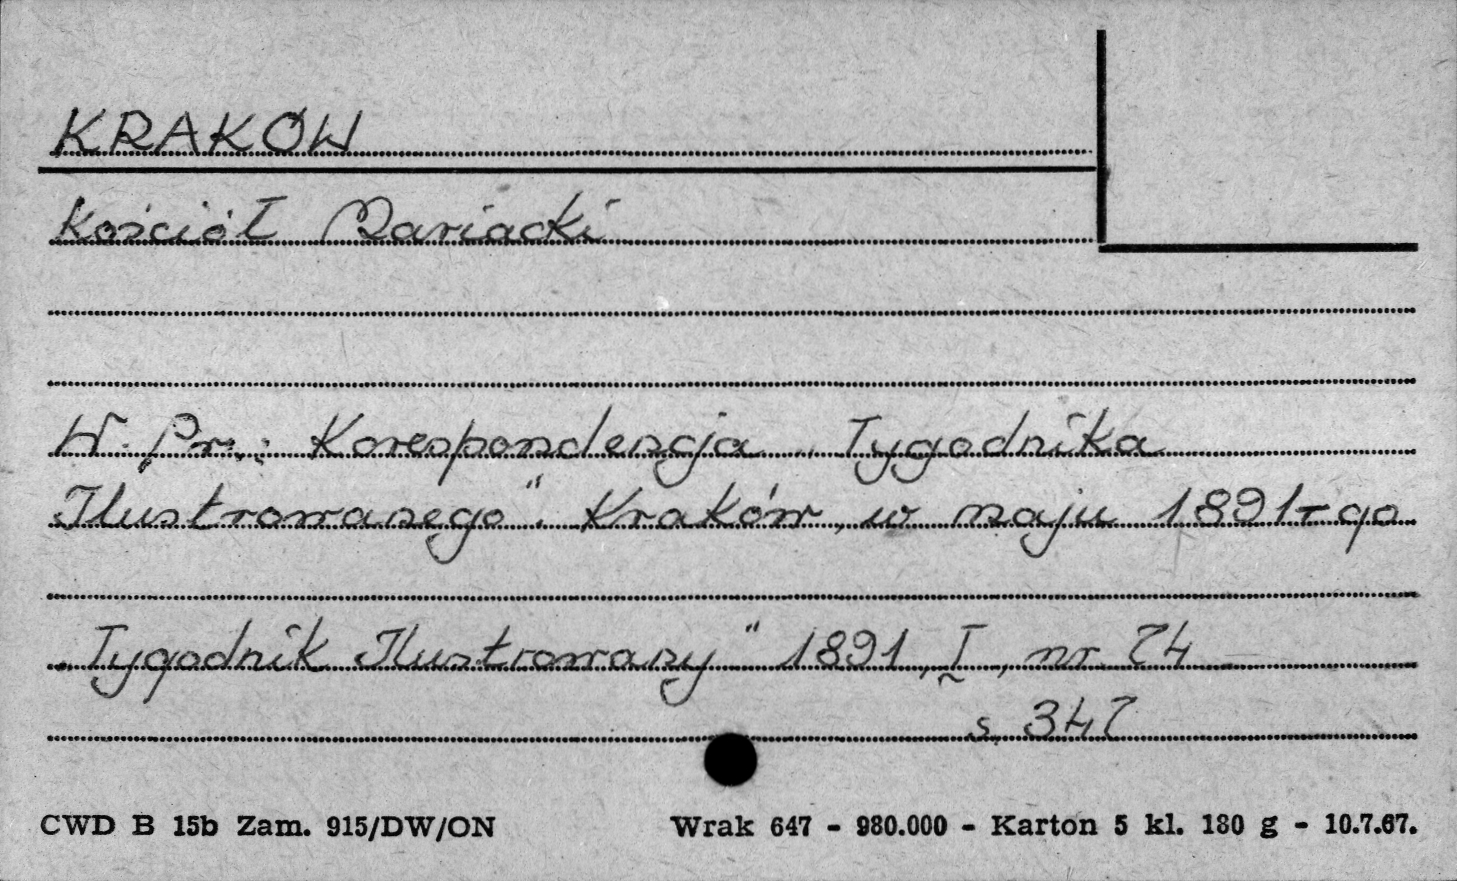 KRAKÓW
Kościół Mariacki
W. Pr.: Korespondencja „Tygodnika
Ilustrowanego“. Kraków, w maju 1891-go
„Tygodnik Ilustrowany“ 1891, I, nr. 74
s. 347
CWD B 15b Zam. 915/DW/ON
Wrak 647 - 980.000 - Karton 5 kl. 180 g - 10.7.67.